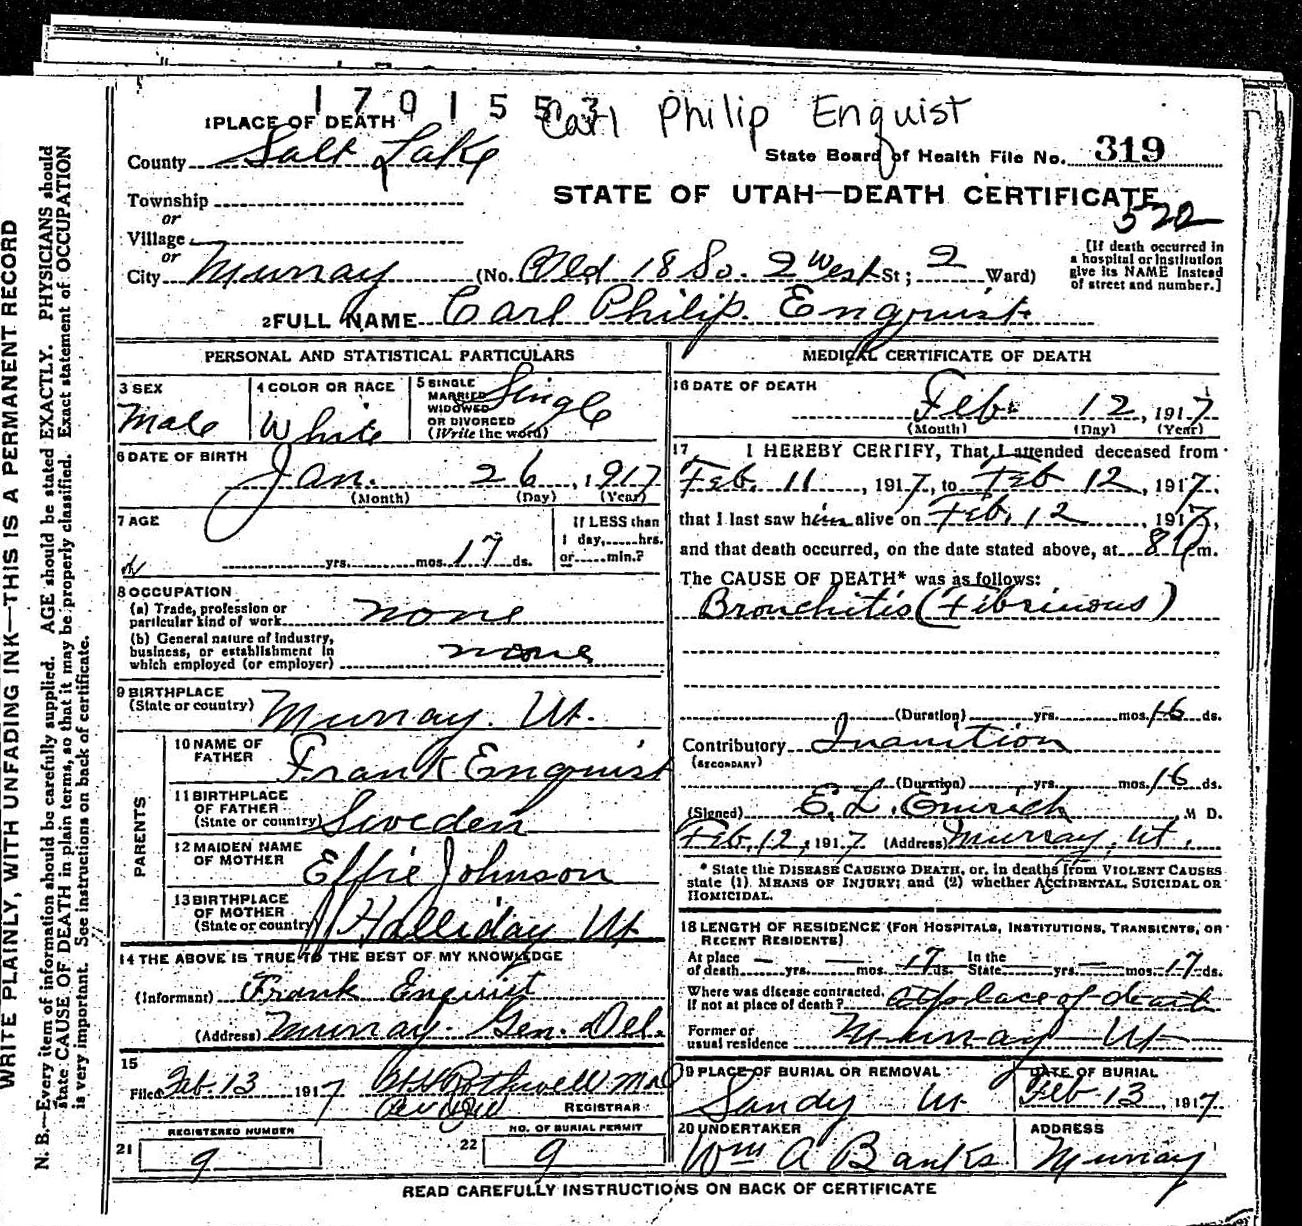 1701553
Carl Philip Enquist
1 PLACE OF DEATH
County Salt Lake
State Board of Health File No. 319
Township
STATE OF UTAH—DEATH CERTIFICATE
522
or
Village
or
City Murray (No. Old 18 So. 2 West St; 2 Ward)
[If death occurred in
a hospital or institution
give its NAME instead
of street and number.]
2 FULL NAME Carl Philip Enquist
PERSONAL AND STATISTICAL PARTICULARS
3 SEX
Male
4 COLOR OR RACE
White
5 SINGLE
MARRIED
WIDOWED
OR DIVORCED
(Write the word)
Single
6 DATE OF BIRTH
Jan. 26, 1917
(Month) (Day) (Year)
7 AGE
yrs. mos. 17 ds.
If LESS than
1 day, hrs.
or min.?
8 OCCUPATION
(a) Trade, profession or
particular kind of work none
(b) General nature of industry,
business, or establishment in
which employed (or employer) none
9 BIRTHPLACE
(State or country) Murray. Ut.
PARENTS
10 NAME OF
FATHER Frank Enquist
11 BIRTHPLACE
OF FATHER
(State or country) Sweden
12 MAIDEN NAME
OF MOTHER Effie Johnson
13 BIRTHPLACE
OF MOTHER
(State or country) Halliday Ut
14 THE ABOVE IS TRUE TO THE BEST OF MY KNOWLEDGE
(Informant) Frank Enquist
(Address) Murray. Gen. Del.
15
Filed Feb. 13 1917
REGISTRAR
REGISTERED NUMBER
21 9
NO. OF BURIAL PERMIT
22 9
MEDICAL CERTIFICATE OF DEATH
16 DATE OF DEATH
Feb. 12, 1917
(Month) (Day) (Year)
17 I HEREBY CERTIFY, That I attended deceased from
Feb. 11, 1917, to Feb 12, 1917,
that I last saw him alive on Feb. 12, 1917,
and that death occurred, on the date stated above, at 8 P m.
The CAUSE OF DEATH* was as follows:
Bronchitis (Fibrinous)
(Duration) yrs. mos. 16 ds.
Contributory Inanition
(SECONDARY)
(Duration) yrs. mos. 16 ds.
(Signed) E. L. Emrich M D.
Feb. 12, 1917 (Address) Murray, Ut.
* State the DISEASE CAUSING DEATH, or, in deaths from VIOLENT CAUSES
state (1) MEANS OF INJURY; and (2) whether ACCIDENTAL, SUICIDAL OR
HOMICIDAL.
18 LENGTH OF RESIDENCE (FOR HOSPITALS, INSTITUTIONS, TRANSIENTS, OR
RECENT RESIDENTS)
At place
of death — yrs. — mos. 17 ds. In the
State yrs. — mos. 17 ds.
Where was disease contracted,
If not at place of death? at place of death
Former or
usual residence Murray Ut
19 PLACE OF BURIAL OR REMOVAL
Sandy Ut
DATE OF BURIAL
Feb. 13, 1917
20 UNDERTAKER
Wm A Banks
ADDRESS
Murray
READ CAREFULLY INSTRUCTIONS ON BACK OF CERTIFICATE
WRITE PLAINLY, WITH UNFADING INK—THIS IS A PERMANENT RECORD
N. B.—Every item of information should be carefully supplied. AGE should be stated EXACTLY. PHYSICIANS should
state CAUSE OF DEATH in plain terms, so that it may be properly classified. Exact statement of OCCUPATION
is very important. See instructions on back of certificate.